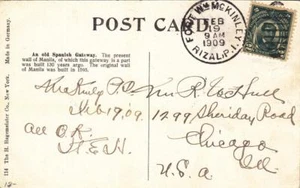 POST CARD
Made in Germany.
An old Spanish Gateway. The present
wall of Manila, of which this gateway is a part
was built 130 years ago. The original wall
of Manila was built in 1590.
FORT WM MCKINLEY
FEB
19
9 AM
1909
RIZAL, P.I.
McKinley P.I.
Feb 19, 09.
All O.K.
H.E.H.
Mr. R. W. Hull
1299 Sheridan Road
Chicago
Ill.
U.S.A.
124 The H. Hagemeister Co., New York.